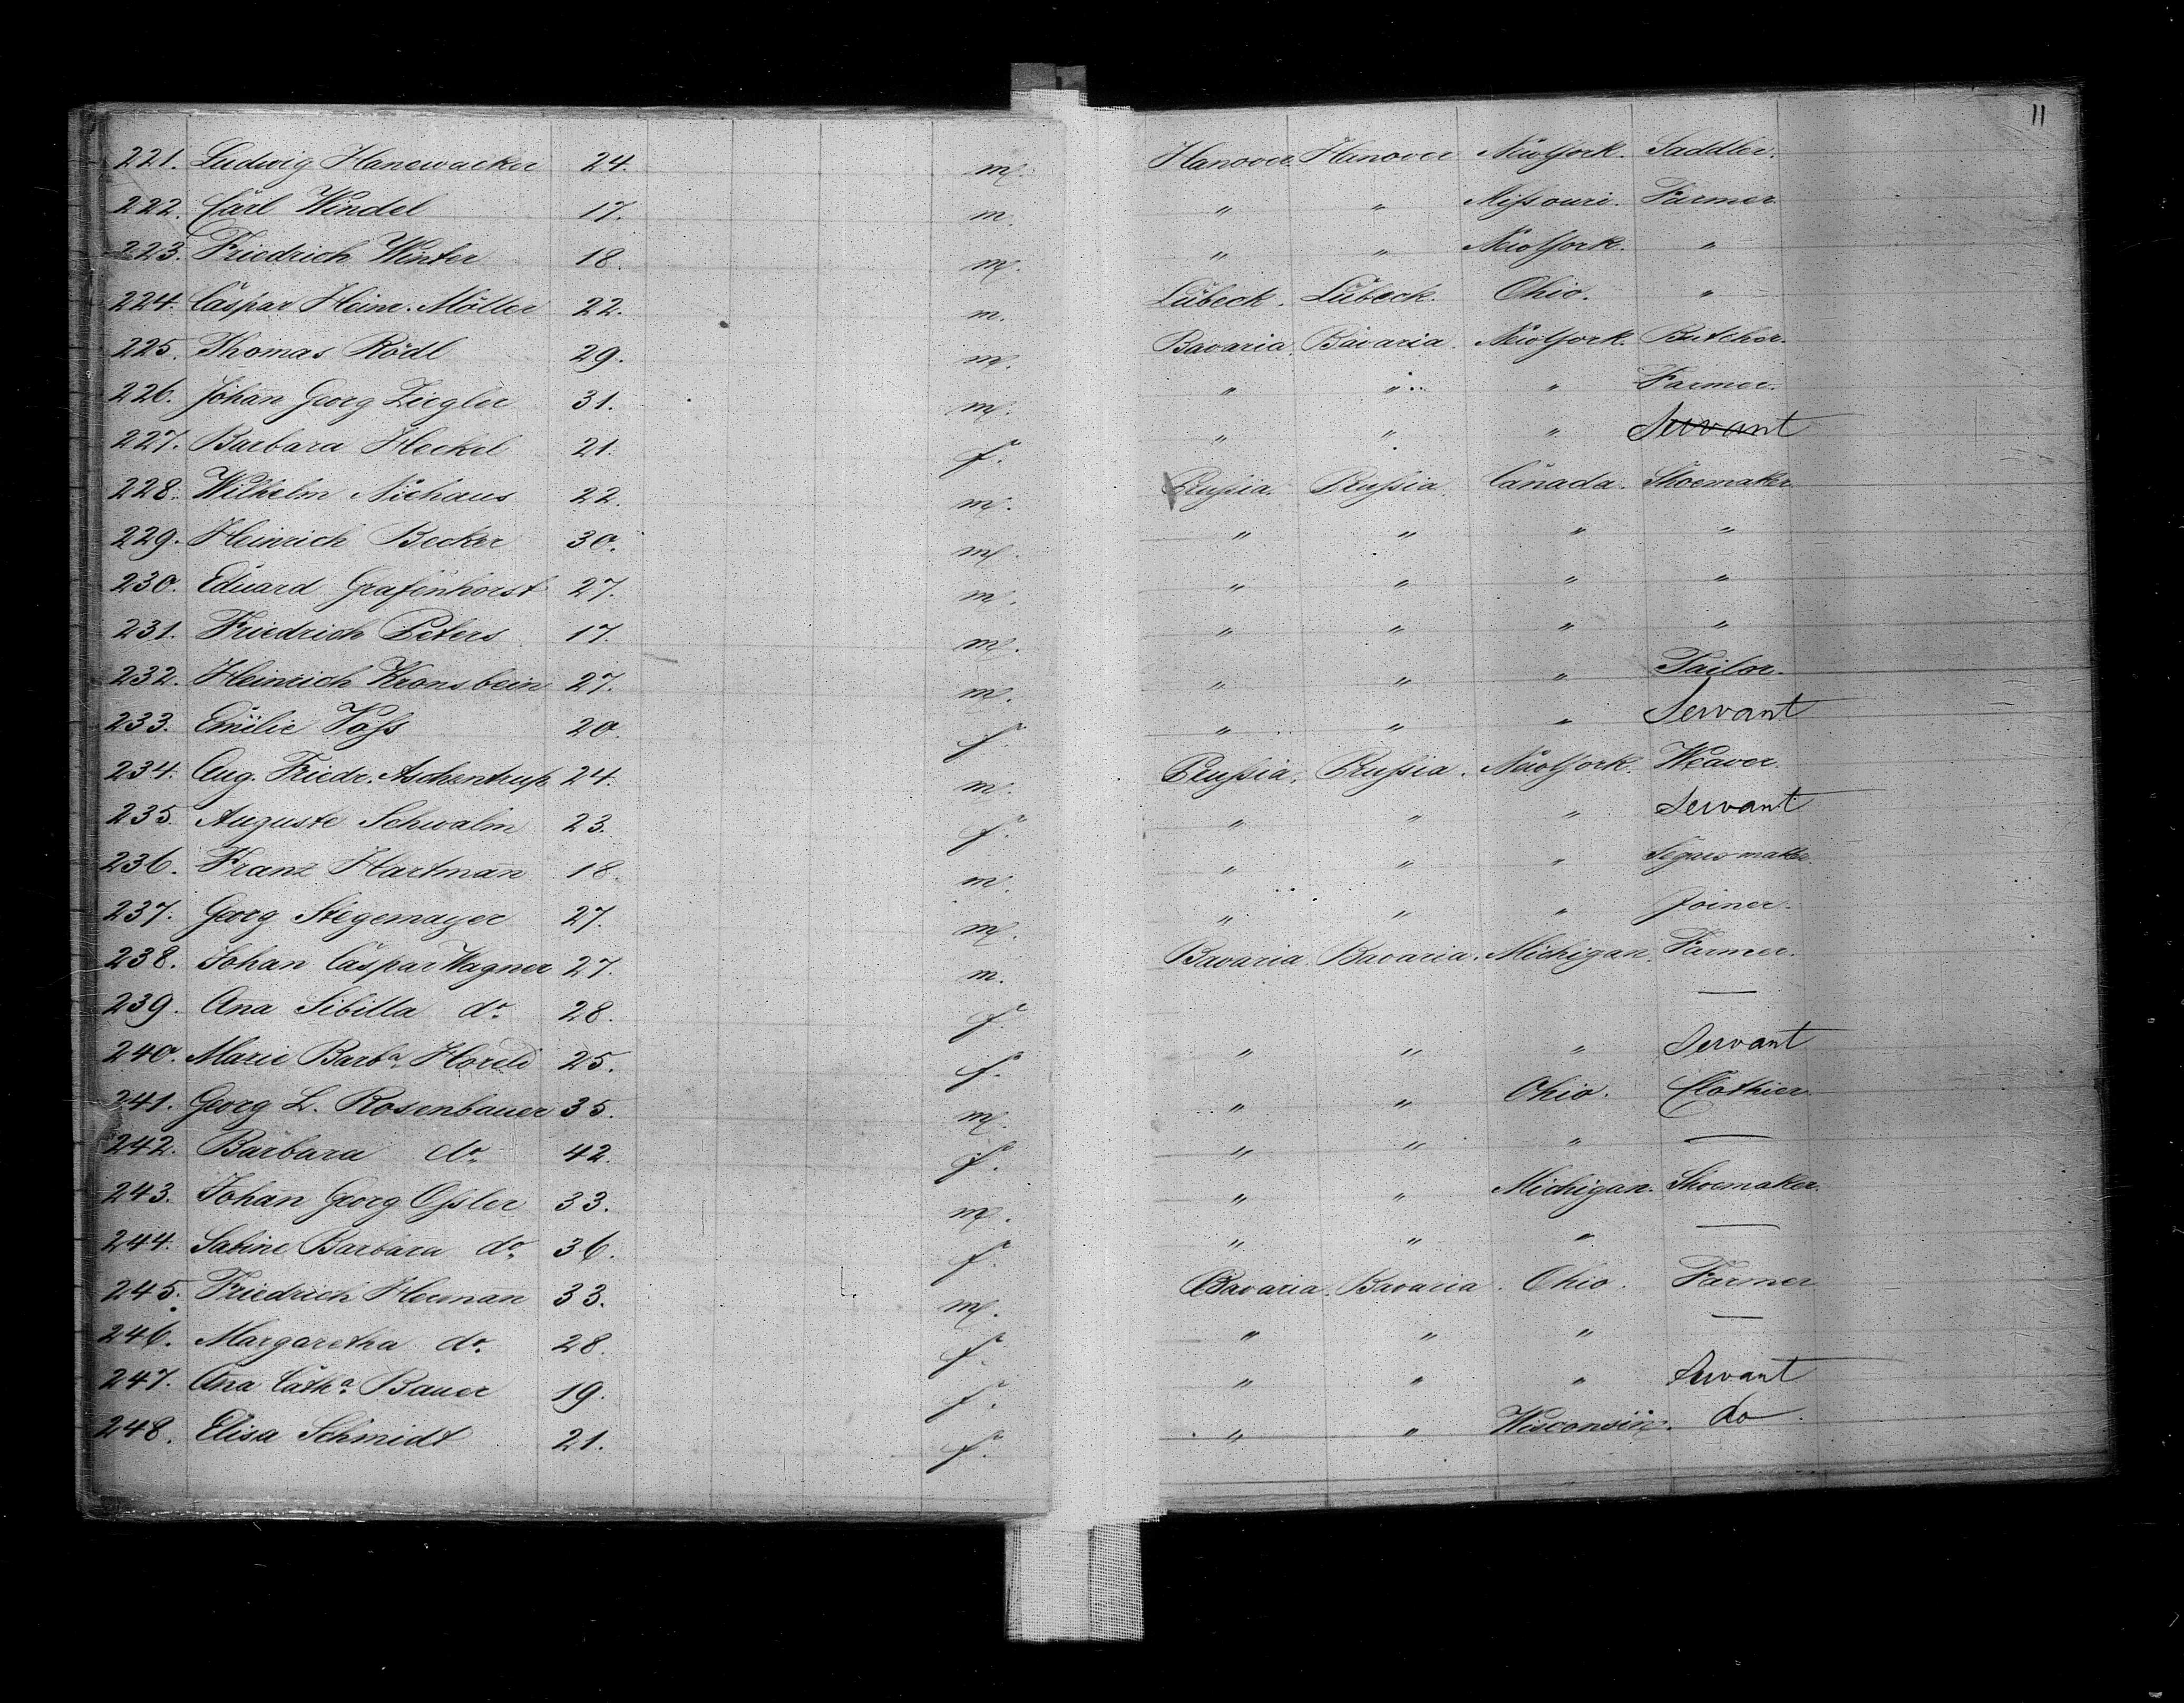 11
221. Ludwig Hanewacker 24. m. Hanover. Hanover NewYork. Saddler.
222. Carl Windel 17. m. " " Missouri. Farmer
223. Friedrich Winter 18. m. " " NewYork. "
224. Caspar Heinr. Möller 22. m. Lübeck. Lübeck. Ohio. "
225. Thomas Rödl 29. m. Bavaria. Bavaria. NewYork. Butcher.
226. Johan̄ Georg Ziegler 31. m. " " " Farmer.
227. Barbara Heckel 21. f. " " " Servant
228. Wilhelm Niehaus 22. m. Prussia. Prussia. Canada. Shoemaker
229. Heinrich Becker 30. m. " " " "
230. Eduard Grafenhorst 27. m. " " " "
231. Friedrich Peters 17. m. " " " "
232. Heinrich Kronsbein 27. m. " " " Tailor.
233. Emilie Voss 20. f. " " " Servant
234. Aug. Friedr. Aschentrup 24. m. Prussia. Prussia. NewYork. Weaver.
235. Auguste Schwalm 23. f. " " " Servant
236. Franz Hartman̄ 18. m. " " " Segars maker.
237. Georg Stegemayer 27. m. " " " Joiner.
238. Johan Caspar Wagner 27. m. Bavaria. Bavaria. Michigan. Farmer.
239. An̄a Sibilla do. 28. f. —
240. Marie Barba. 25. f. " " " Servant
241. Georg L. Rosenbauer 35. m. " " Ohio. Clothier.
242. Barbara do. 42. f. " " " —
243. Johan̄ Georg Ossler 33. m. " " Michigan. Shoemaker.
244. Sabine Barbara do. 36. f. " " " —
245. Friedrich Herman̄ 33. m. Bavaria. Bavaria. Ohio. Farmer
246. Margaretha do. 28. f. " " " —
247. An̄a Catha. Bauer 19. f. " " " Servant
248. Elisa Schmidt 21. f. " " Wisconsin. do.